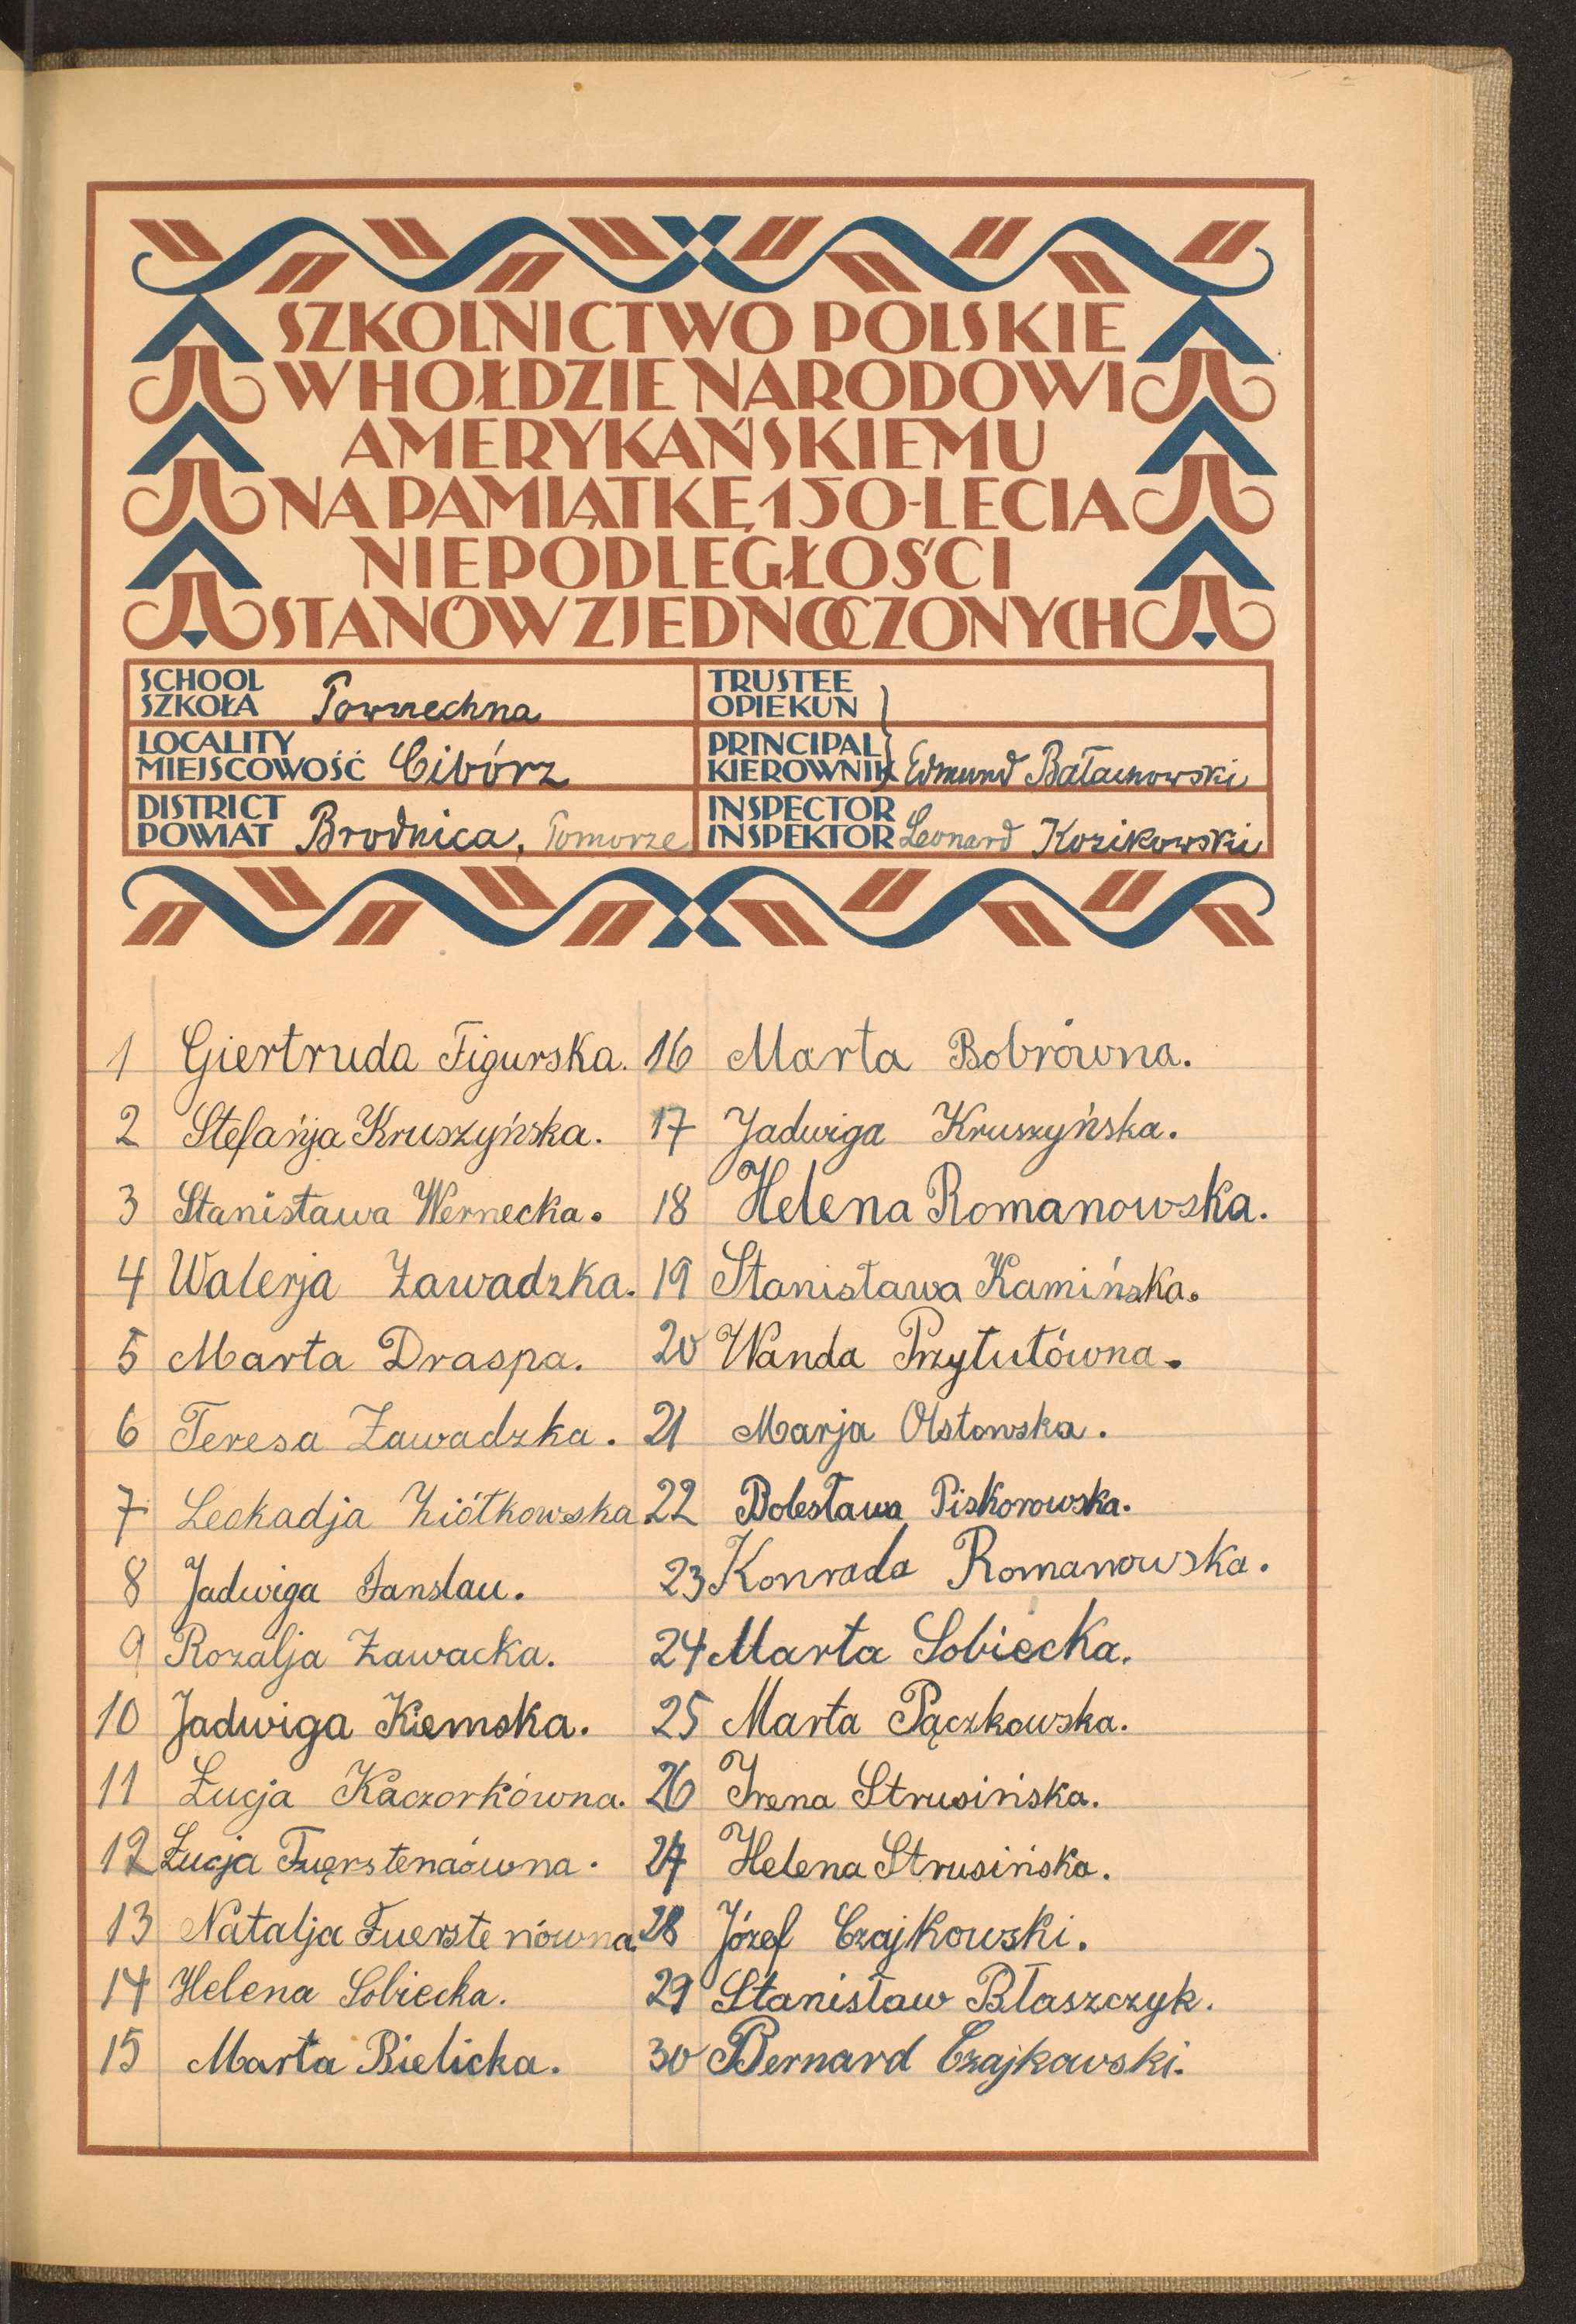 SZKOLNICTWO POLSKIE
W HOŁDZIE NARODOWI
AMERYKAŃSKIEMU
NA PAMIĄTKĘ 150-LECIA
NIEPODLEGŁOŚCI
STANÓW ZJEDNOCZONYCH
SCHOOL
SZKOŁA Powszechna
TRUSTEE
OPIEKUN
LOCALITY
MIEJSCOWOŚĆ Cibórz
PRINCIPAL
KIEROWNIK Edmund Bałachowski
DISTRICT
POWIAT Brodnica, Pomorze
INSPECTOR
INSPEKTOR Leonard Kozikowski
1 Giertruda Figurska.
2 Stefańja Kruszyńska.
3 Stanisława Wernecka.
4 Walerja Zawadzka.
5 Marta Draspa.
6 Teresa Zawadzka.
7 Leokadja Ziółkowska.
8 Jadwiga Fanslau.
9 Rozalja Zawacka.
10 Jadwiga Kiemska.
11 Łucja Kaczorkówna.
12 Łucja Fuerstenaówna.
13 Natalja Fuerstenówna.
14 Helena Sobiecka.
15 Marta Bielicka.
16 Marta Bobrówna.
17 Jadwiga Kruszyńska.
18 Helena Romanowska.
19 Stanisława Kamińska.
20 Wanda Przytułówna.
21 Marja Olstowska.
22 Bolesława Piskorowska.
23 Konrada Romanowska.
24 Marta Sobiecka.
25 Marta Pączkowska.
26 Irena Strusińska.
27 Helena Strusińska.
28 Józef Czajkowski.
29 Stanisław Błaszczyk.
30 Bernard Czajkowski.